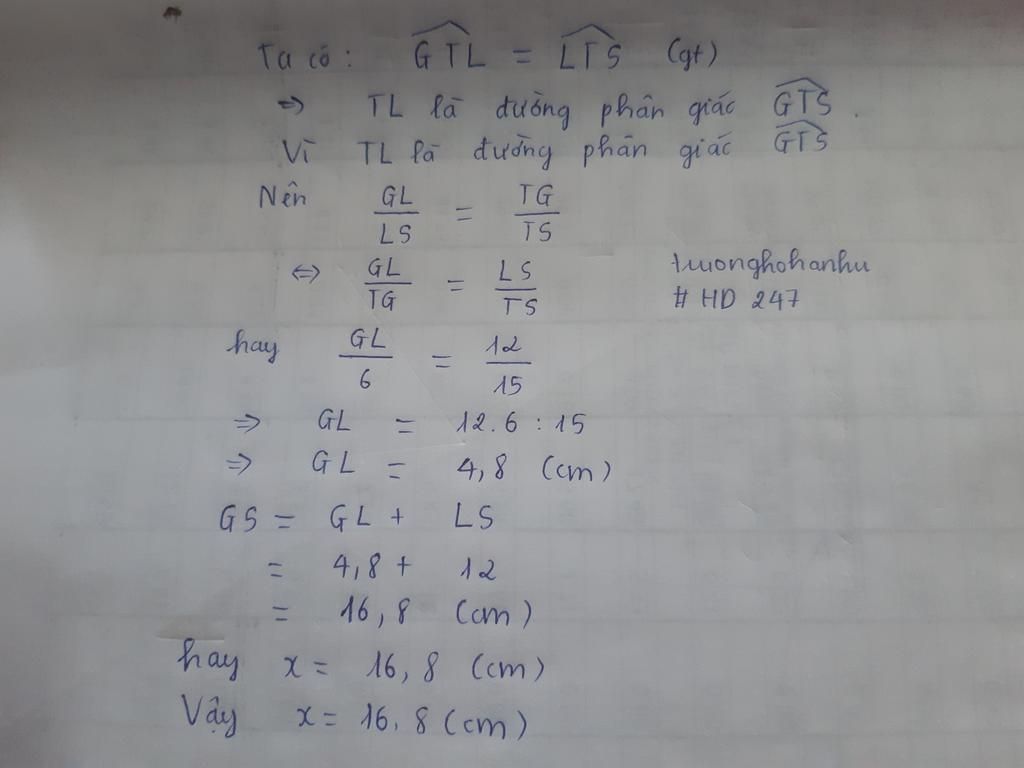 Ta có : GTL = LTS (gt)
=> TL là đường phân giác GTS .
Vì TL là đường phân giác GTS
Nên GL/LS = TG/TS
<=> GL/TG = LS/TS
truonghohanhu
# HD 247
hay GL/6 = 12/15
=> GL = 12.6 : 15
=> GL = 4,8 (cm)
GS = GL + LS
= 4,8 + 12
= 16,8 (cm)
hay x = 16,8 (cm)
Vậy x = 16,8 (cm)